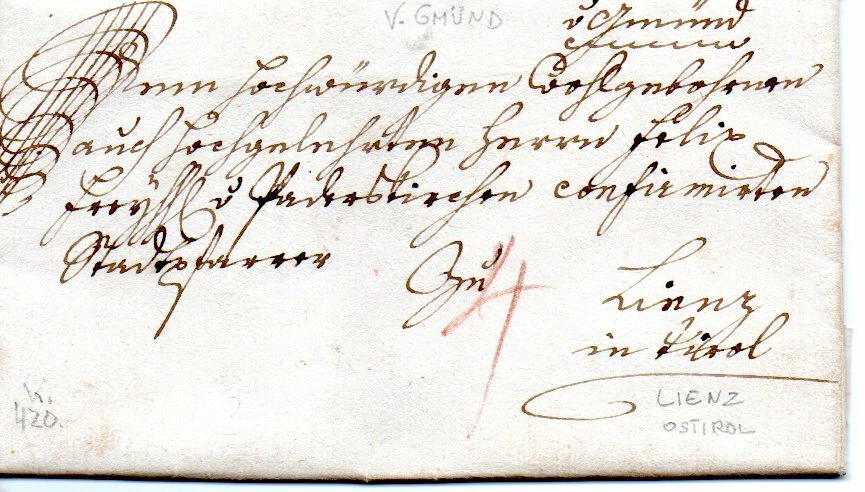 V. GMÜND
v Gmünd
Dem Hochwürdigen Wohlgebohrnen
auch Hochgelehrten Herrn Felix
Freyh v Paderskirchen confirmirten
Stadtpfarrer
Zu 4 Lienz
in Tirol
K. 420.
LIENZ
OSTIROL